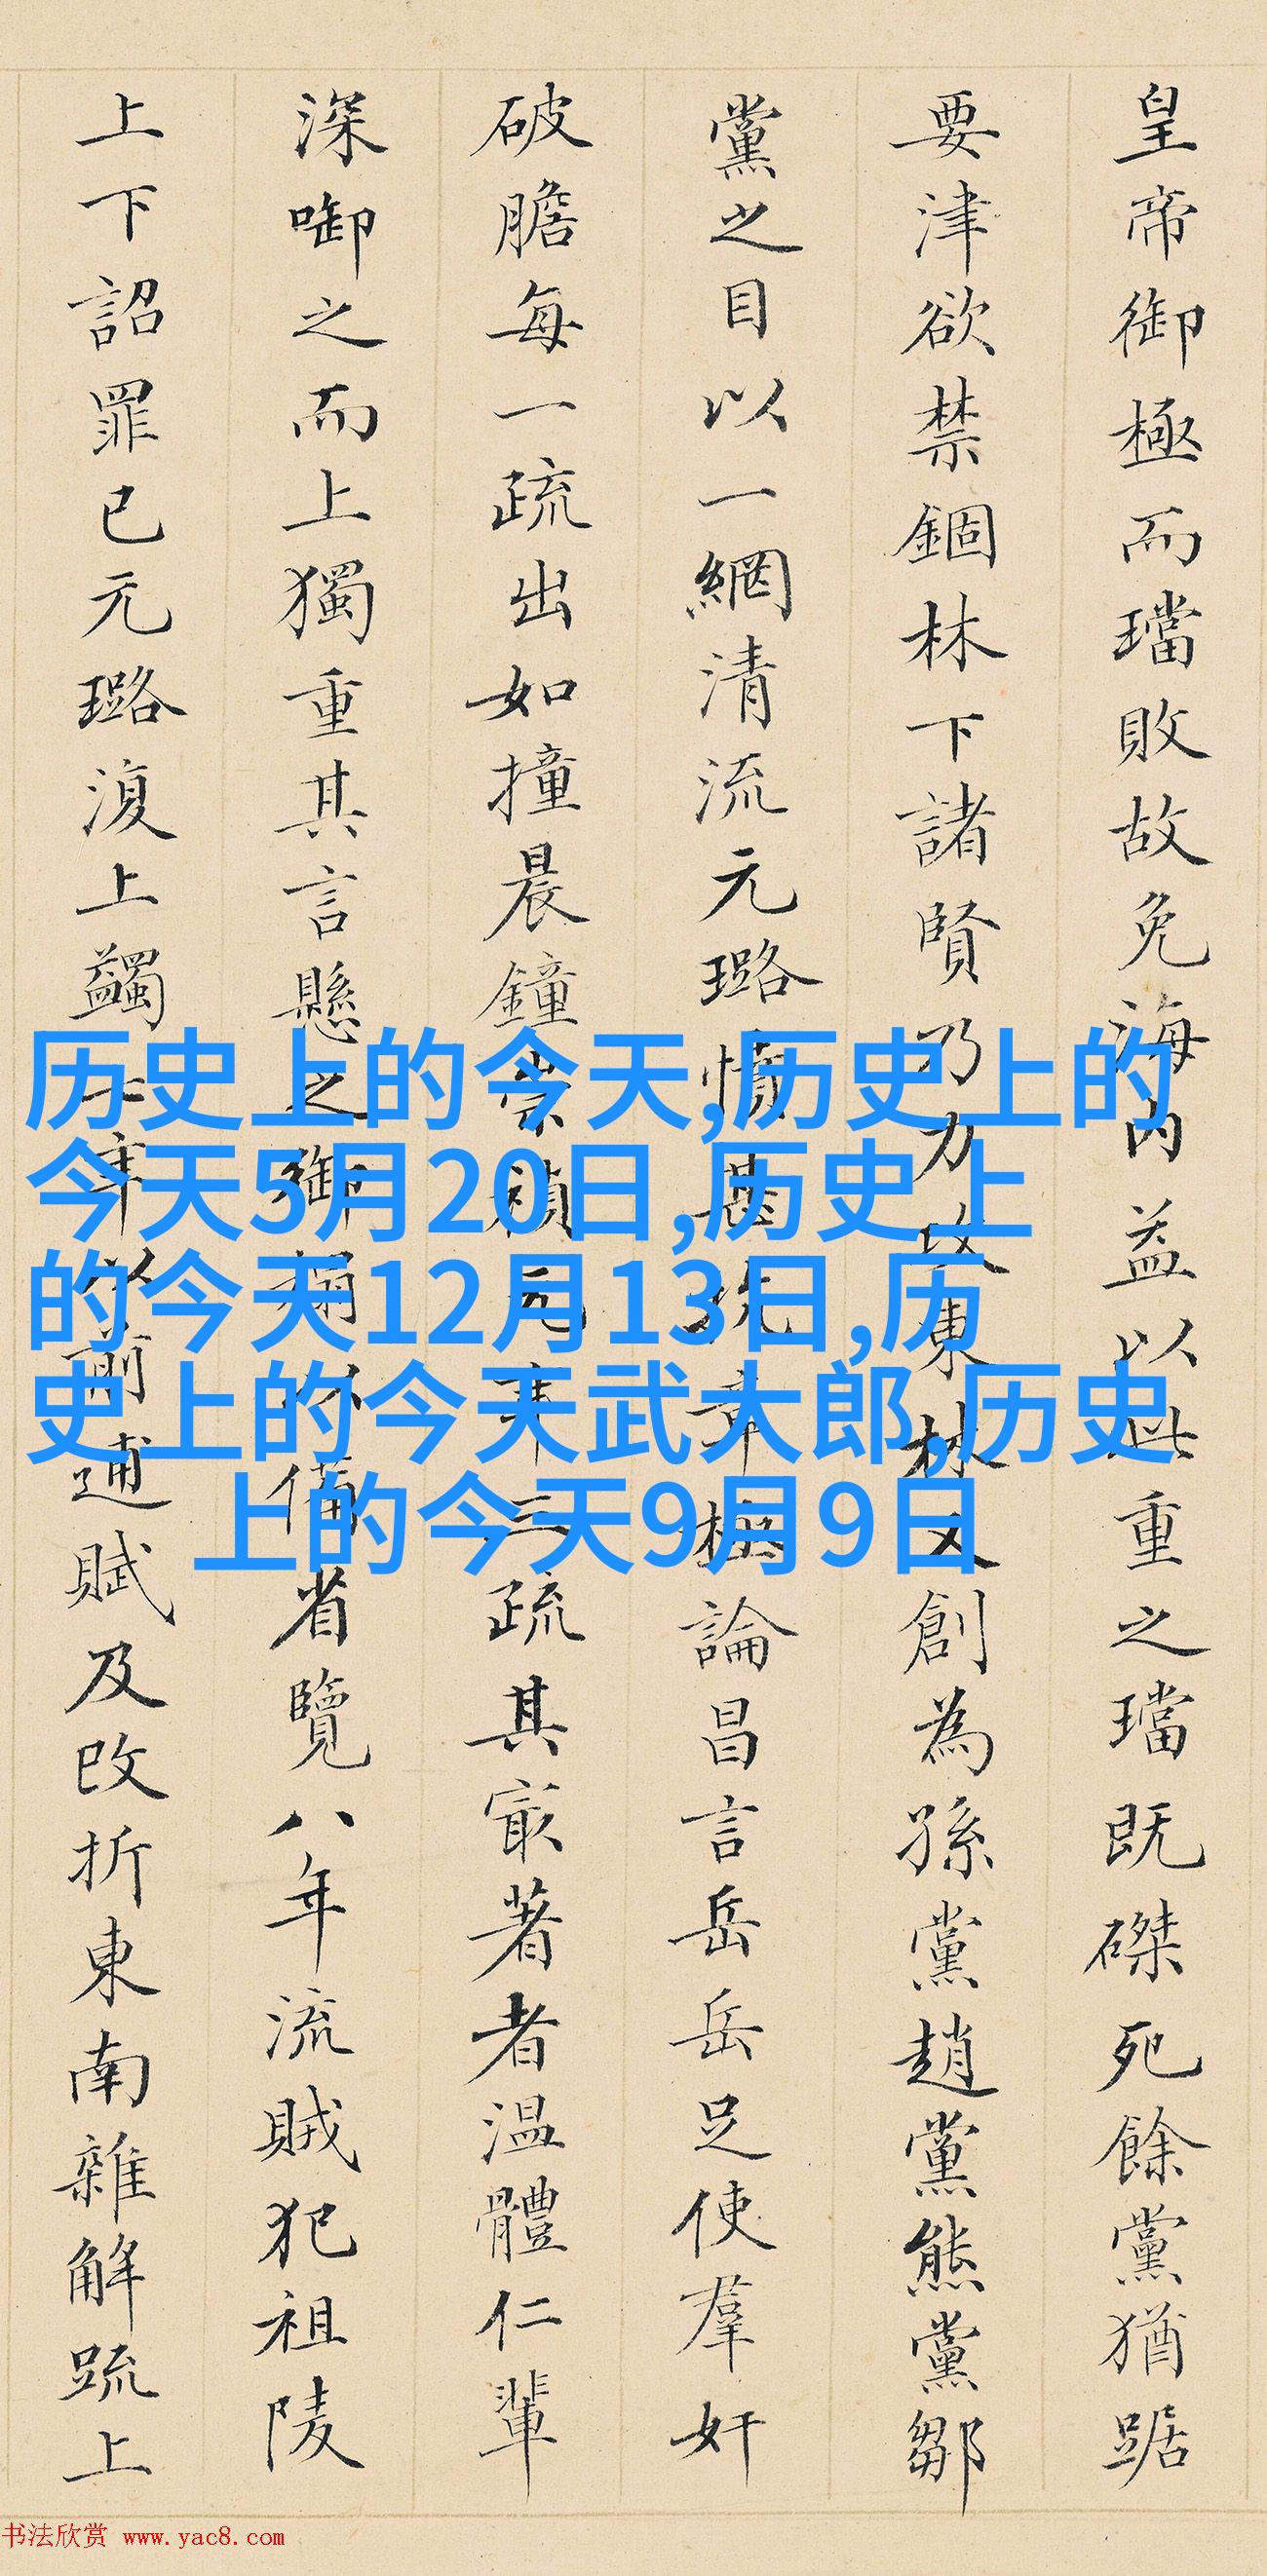 皇帝御極而璫敗故免海內益以此重之璫既磔死餘黨猶踞
要津欲禁錮林下諸賢乃力攻東林又創為孫黨趙黨熊黨鄒
黨之目以一網清流元璐憤甚抗章極論昌言岳岳足使羣奸
破膽每一疏出如撞晨鐘崇禎元年三疏其最著者溫體仁輩
深啣之而上獨重其言懸之御 備省覽八年流賊犯祖陵
上下詔罪己元璐復上蠲 年以前逋賦及改折東南雜解疏上
历史上的今天,历史上的
今天5月20日,历史上
的今天12月13日,历
史上的今天武大郎,历史
上的今天9月9日
书法欣赏 www.yac8.com